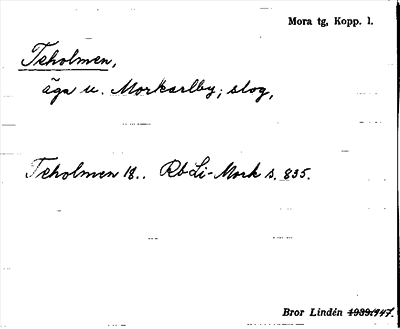 Mora tg, Kopp. l.
Teholmen,
äga u. Morkarlby; slog,
Teholmen 18.. Rb Li-Mork s. 835.
Bror Lindén 1939:947.